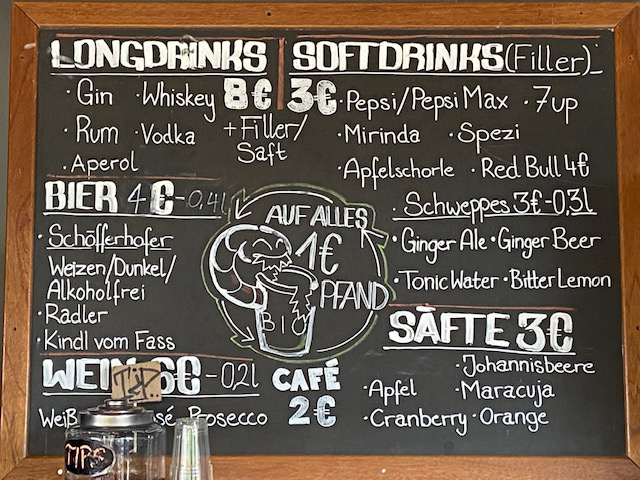 LONGDRINKS
· Gin · Whiskey 8€
· Rum · Vodka + Filler/
Saft
· Aperol
SOFTDRINKS (Filler)
3€ · Pepsi/Pepsi Max · 7up
· Mirinda · Spezi
· Apfelschorle · Red Bull 4€
· Schweppes 3€-0,3l
· Ginger Ale · Ginger Beer
· Tonic Water · Bitter Lemon
BIER 4€-0,4l
· Schöfferhofer
Weizen/Dunkel/
Alkoholfrei
· Radler
· Kindl vom Fass
AUF ALLES
1€
PFAND
BIO
WEIN 6€-0,2l
Prosecco
CAFÉ
2€
SÄFTE 3€
· Johannisbeere
· Apfel · Maracuja
· Cranberry · Orange
TIPS